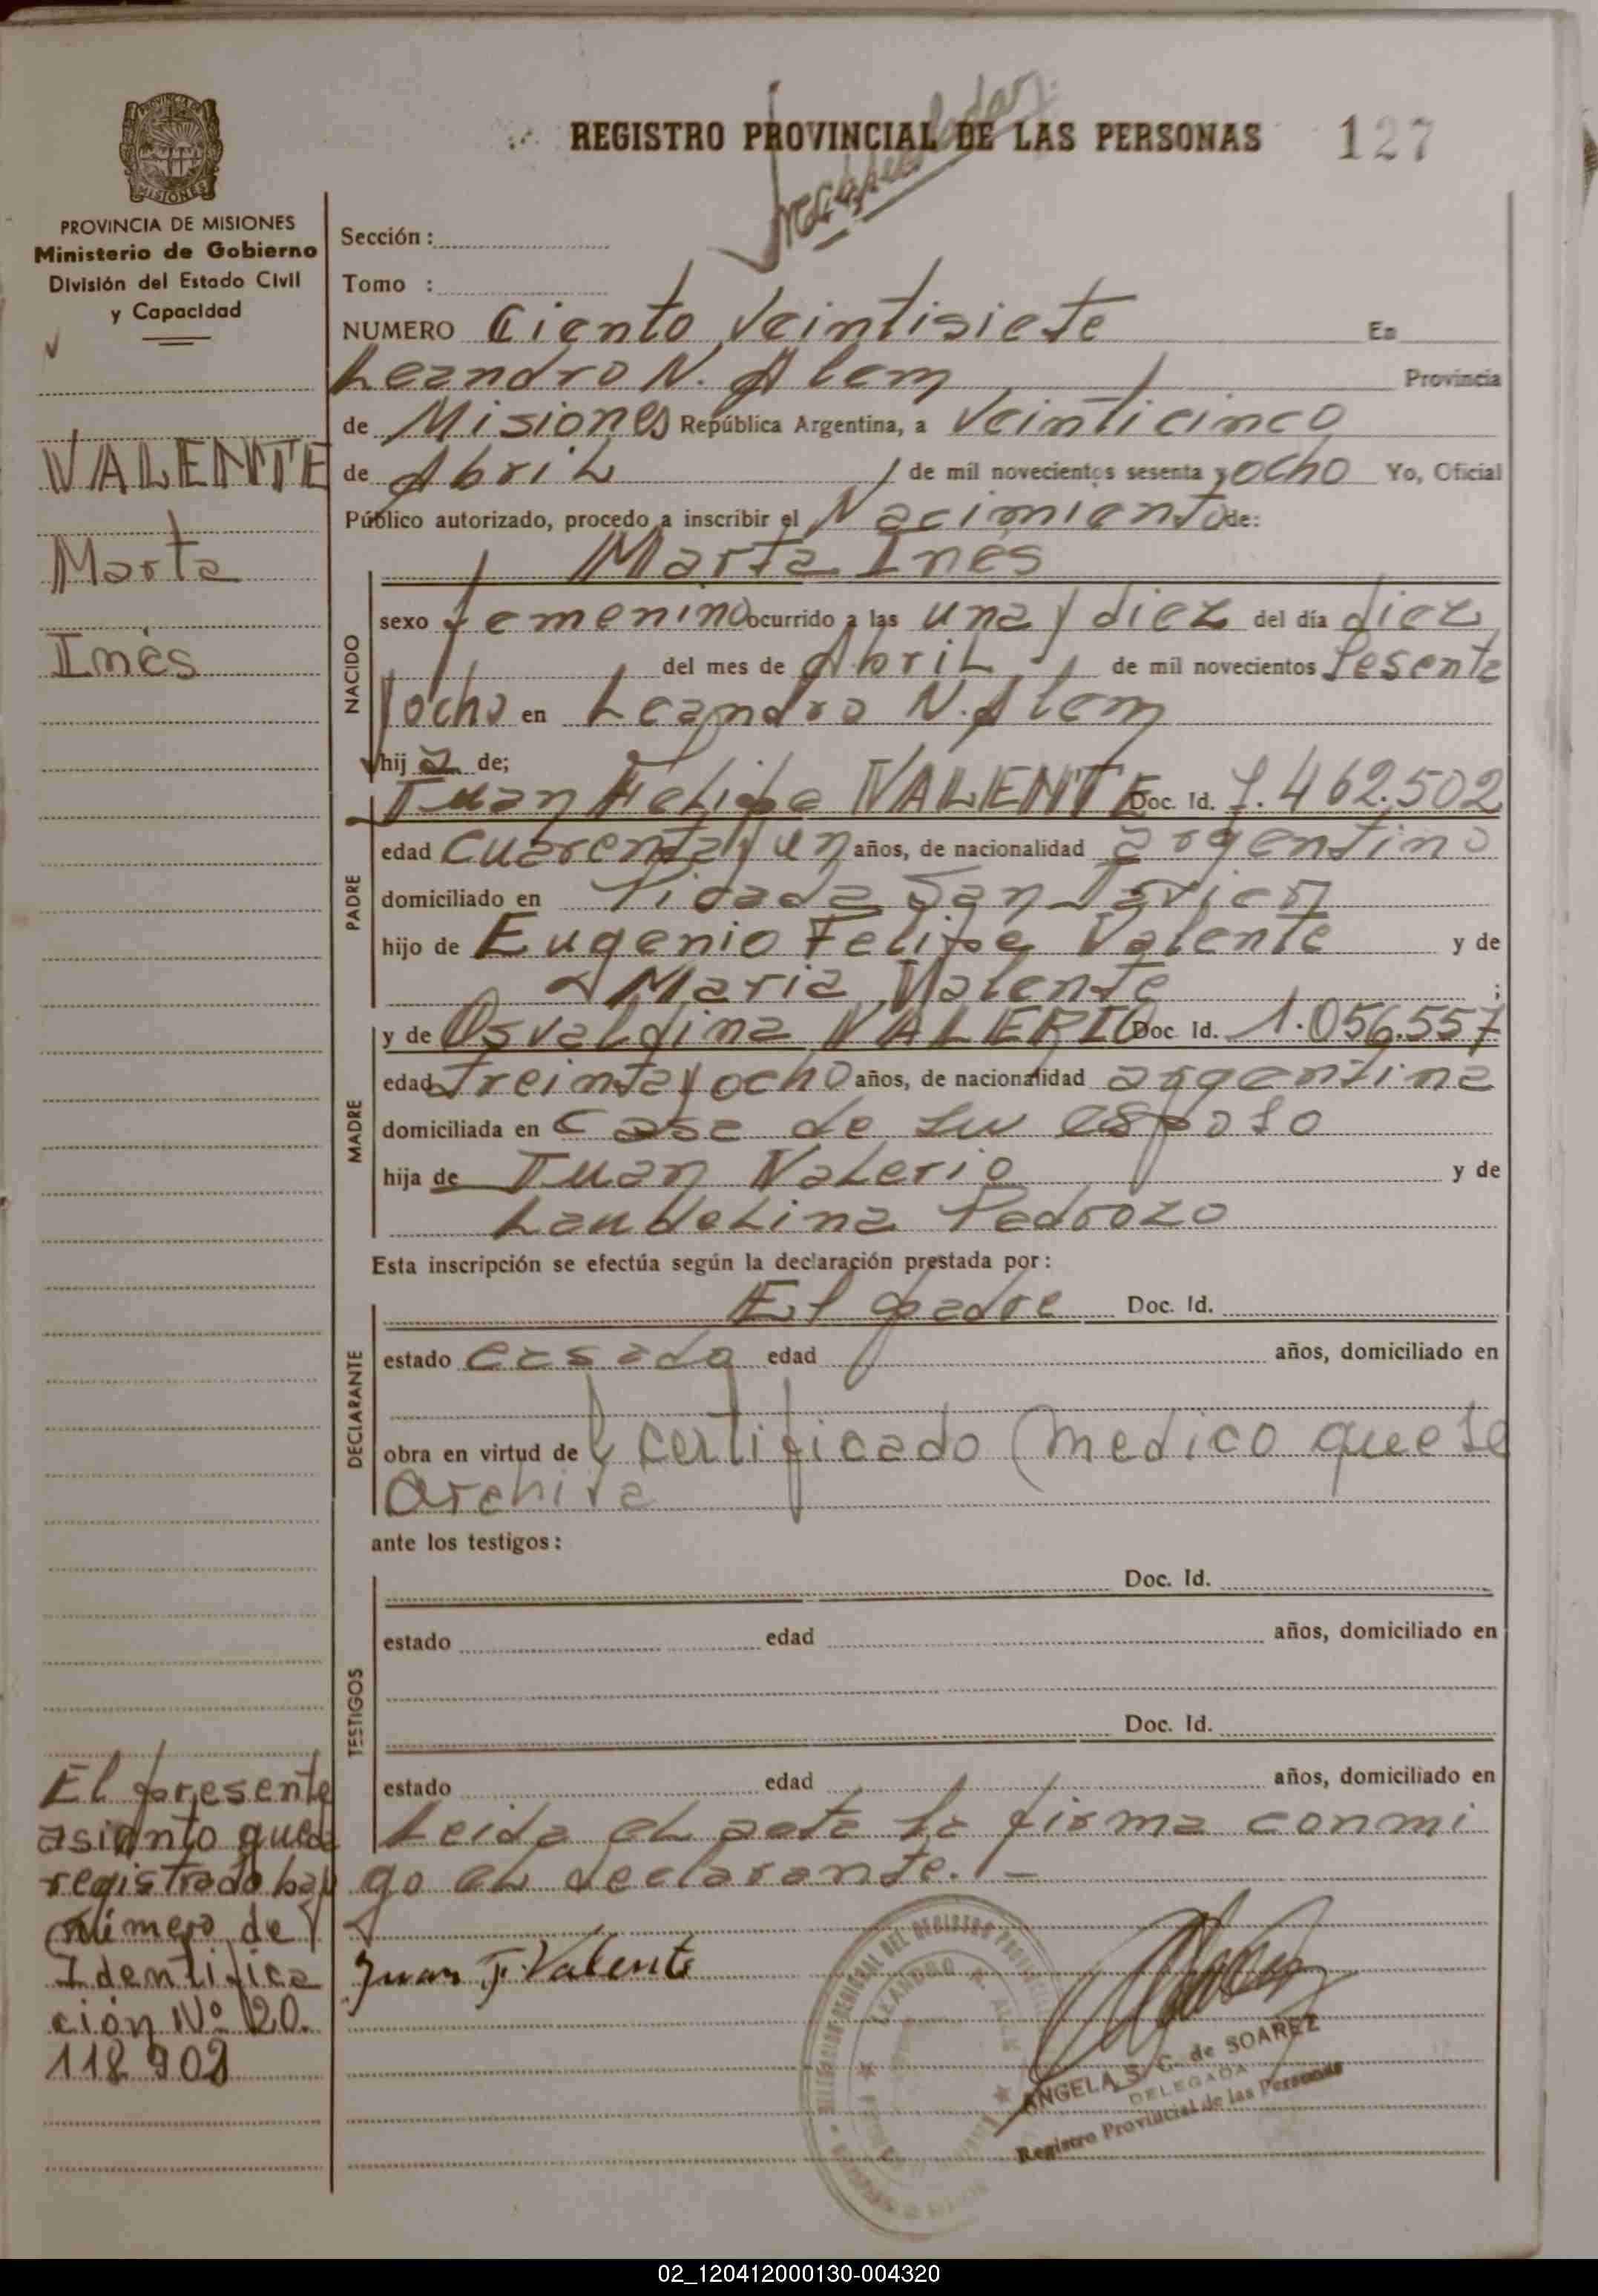 REGISTRO PROVINCIAL DE LAS PERSONAS 127
PROVINCIA DE MISIONES
MISIONES
PROVINCIA DE MISIONES
Ministerio de Gobierno
División del Estado Civil
y Capacidad
VALENTE
Marta
Inés
Sección :
Tomo :
NUMERO Ciento Veintisiete En
Leandro N. Alem Provincia
de Misiones República Argentina, a Veinticinco
de Abril de mil novecientos sesenta y ocho Yo, Oficial
Público autorizado, procedo a inscribir el Nacimiento de:
Marta Inés
NACIDO
sexo femenino ocurrido a las una y diez del día diez
del mes de Abril de mil novecientos Sesenta
y ocho en Leandro N. Alem
hij a de;
PADRE
Juan Felipe VALENTE Doc. Id. 7.462.502
edad cuarenta y un años, de nacionalidad argentino
domiciliado en Picada San Javier
hijo de Eugenio Felipe Valente y de
Maria Valente ;
MADRE
y de Osvaldina VALERIO Doc. Id. 1.056.557
edad treinta y ocho años, de nacionalidad argentina
domiciliada en Casa de su esposo
hija de Juan Valerio y de
Laudelina Pedrozo
Esta inscripción se efectúa según la declaración prestada por:
DECLARANTE
El padre Doc. Id.
estado casado edad años, domiciliado en
obra en virtud de certificado medico que se
archiva
ante los testigos:
TESTIGOS
Doc. Id.
estado edad años, domiciliado en
Doc. Id.
estado edad años, domiciliado en
Leida el acta la firma conmi
go el declarante. -
Juan F. Valente
El presente
asiento queda
registrado bajo
número de
Identifica
ción Nº 20.
118.902
LEANDRO N. ALEM
ANGELA S. G. de SOAREZ
DELEGADA
Registro Provincial de las Personas
02_120412000130-004320